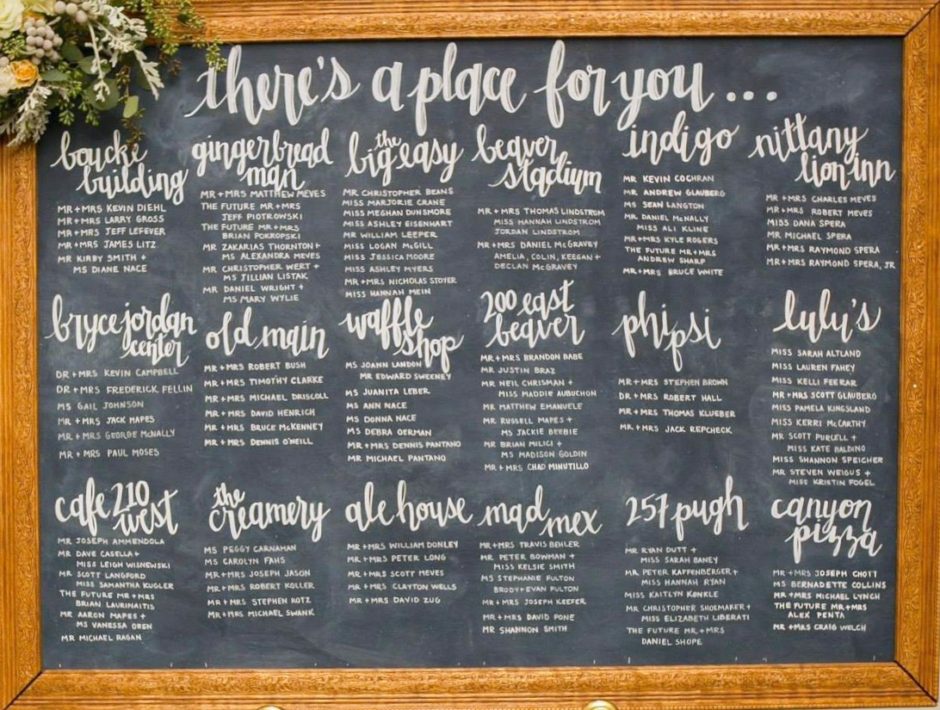 there's a place for you...
boucke
building
MR + MRS KEVIN DIEHL
MR + MRS LARRY GROSS
MR + MRS JEFF LEFEVER
MR + MRS JAMES LITZ
MR KIRBY SMITH +
MS DIANE NACE
gingerbread
man
MR + MRS MATTHEW MEVES
THE FUTURE MR + MRS
JEFF PIOTROWSKI
THE FUTURE MR + MRS
BRIAN POKROPSKI
MR ZAKARIAS THORNTON +
MS ALEXANDRA MEVES
MR CHRISTOPHER WERT +
MS JILLIAN LISTAK
MR DANIEL WRIGHT +
MS MARY WYLIE
the
big easy
MR CHRISTOPHER BEANS
MISS MARJORIE CRANE
MISS MEGHAN DUNSMORE
MISS ASHLEY EISENHART
MR WILLIAM LEEPER
MISS LOGAN McGILL
MISS JESSICA MOORE
MISS ASHLEY MYERS
MR + MRS NICHOLAS STOYER
MISS HANNAH MEIN
beaver
stadium
MR + MRS THOMAS LINDSTROM
MISS HANNAH LINDSTROM
JORDAN LINDSTROM
MR + MRS DANIEL McGRAVEY
AMELIA, COLIN, KEEGAN +
DECLAN McGRAVEY
indigo
MR KEVIN COCHRAN
MR ANDREW GLAUBERG
MS SEAN LANGTON
MR DANIEL McNALLY
MISS ALI KLINE
MR + MRS KYLE ROGERS
THE FUTURE MR + MRS
ANDREW SHARP
MR + MRS BRUCE WHITE
nittany
lion inn
MR + MRS CHARLES MEVES
MR + MRS ROBERT MEVES
MISS DANA SPERA
MR MICHAEL SPERA
MR + MRS RAYMOND SPERA
MR + MRS RAYMOND SPERA, JR
bryce jordan
center
DR + MRS KEVIN CAMPBELL
DR + MRS FREDERICK FELLIN
MS GAIL JOHNSON
MR + MRS JACK MAPES
MR + MRS GEORGE McNALLY
MR + MRS PAUL MOSES
old main
MR + MRS ROBERT BUSH
MR + MRS TIMOTHY CLARKE
MR + MRS MICHAEL DRISCOLL
MR + MRS DAVID HENRICH
MR + MRS BRUCE McKENNEY
MR + MRS DENNIS O'NEILL
waffle
shop
MS JOANN LANDON
MR EDWARD SWEENEY
MS JUANITA LEBER
MS ANN NACE
MS DONNA NACE
MS DEBRA OERMAN
MR + MRS DENNIS PANTANO
MR MICHAEL PANTANO
200 east
beaver
MR + MRS BRANDON BABE
MR JUSTIN BRAZ
MR NEIL CHRISMAN +
MISS MADDIE AUBUCHON
MR MATTHEW EMANUELE
MR RUSSELL MAPES +
MS JACKIE BEEBIE
MR BRIAN MILICI +
MS MADISON GOLDIN
MR + MRS CHAD MINUTILLO
phi psi
MR + MRS STEPHEN BROWN
DR + MRS ROBERT HALL
MR + MRS THOMAS KLUEBER
MR + MRS JACK REPCHECK
lulu's
MISS SARAH ALTLAND
MISS LAUREN FAHEY
MISS KELLI FEERRAR
MR + MRS SCOTT GLAUBERG
MISS PAMELA KINGSLAND
MISS KERRI McCARTHY
MR SCOTT PURCELL +
MISS KATE BALDINO
MISS SHANNON SPEICHER
MR STEVEN WEIGUS +
MISS KRISTIN FOGEL
cafe 210
west
MR JOSEPH AMMENDOLA
MR DAVE CASELLA +
MISS LEIGH WISNEWSKI
MR SCOTT LANGFORD
MISS SAMANTHA KUGLER
THE FUTURE MR + MRS
BRIAN LAURINAITIS
MR AARON MAPES +
MS VANESSA OREN
MR MICHAEL RAGAN
the
creamery
MS PEGGY CARNAHAN
MS CAROLYN FAHS
MR + MRS JOSEPH JASON
MR + MRS ROBERT KOLLER
MR + MRS STEPHEN ROTZ
MR + MRS MICHAEL SWANK
ale house
MR + MRS WILLIAM DONLEY
MR + MRS PETER LONG
MR + MRS SCOTT MEVES
MR + MRS CLAYTON WELLS
MR + MRS DAVID ZUG
mad
mex
MR + MRS TRAVIS BEHLER
MR PETER BOWMAN +
MISS KELSIE SMITH
MS STEPHANIE FULTON
BRODY + EVAN FULTON
MR + MRS JOSEPH KEEFER
MR + MRS DAVID PONE
MR SHANNON SMITH
257 pugh
MR RYAN DUTT +
MISS SARAH BANEY
MR PETER KAFFENBERGER +
MISS HANNAH RYAN
MISS KAITLYN KONKLE
MR CHRISTOPHER SHOEMAKER +
MISS ELIZABETH LIBERATI
THE FUTURE MR + MRS
DANIEL SHOPE
canyon
pizza
MR + MRS JOSEPH CHOTT
MS BERNADETTE COLLINS
MR + MRS MICHAEL LYNCH
THE FUTURE MR + MRS
ALEX PENTA
MR + MRS CRAIG WELCH